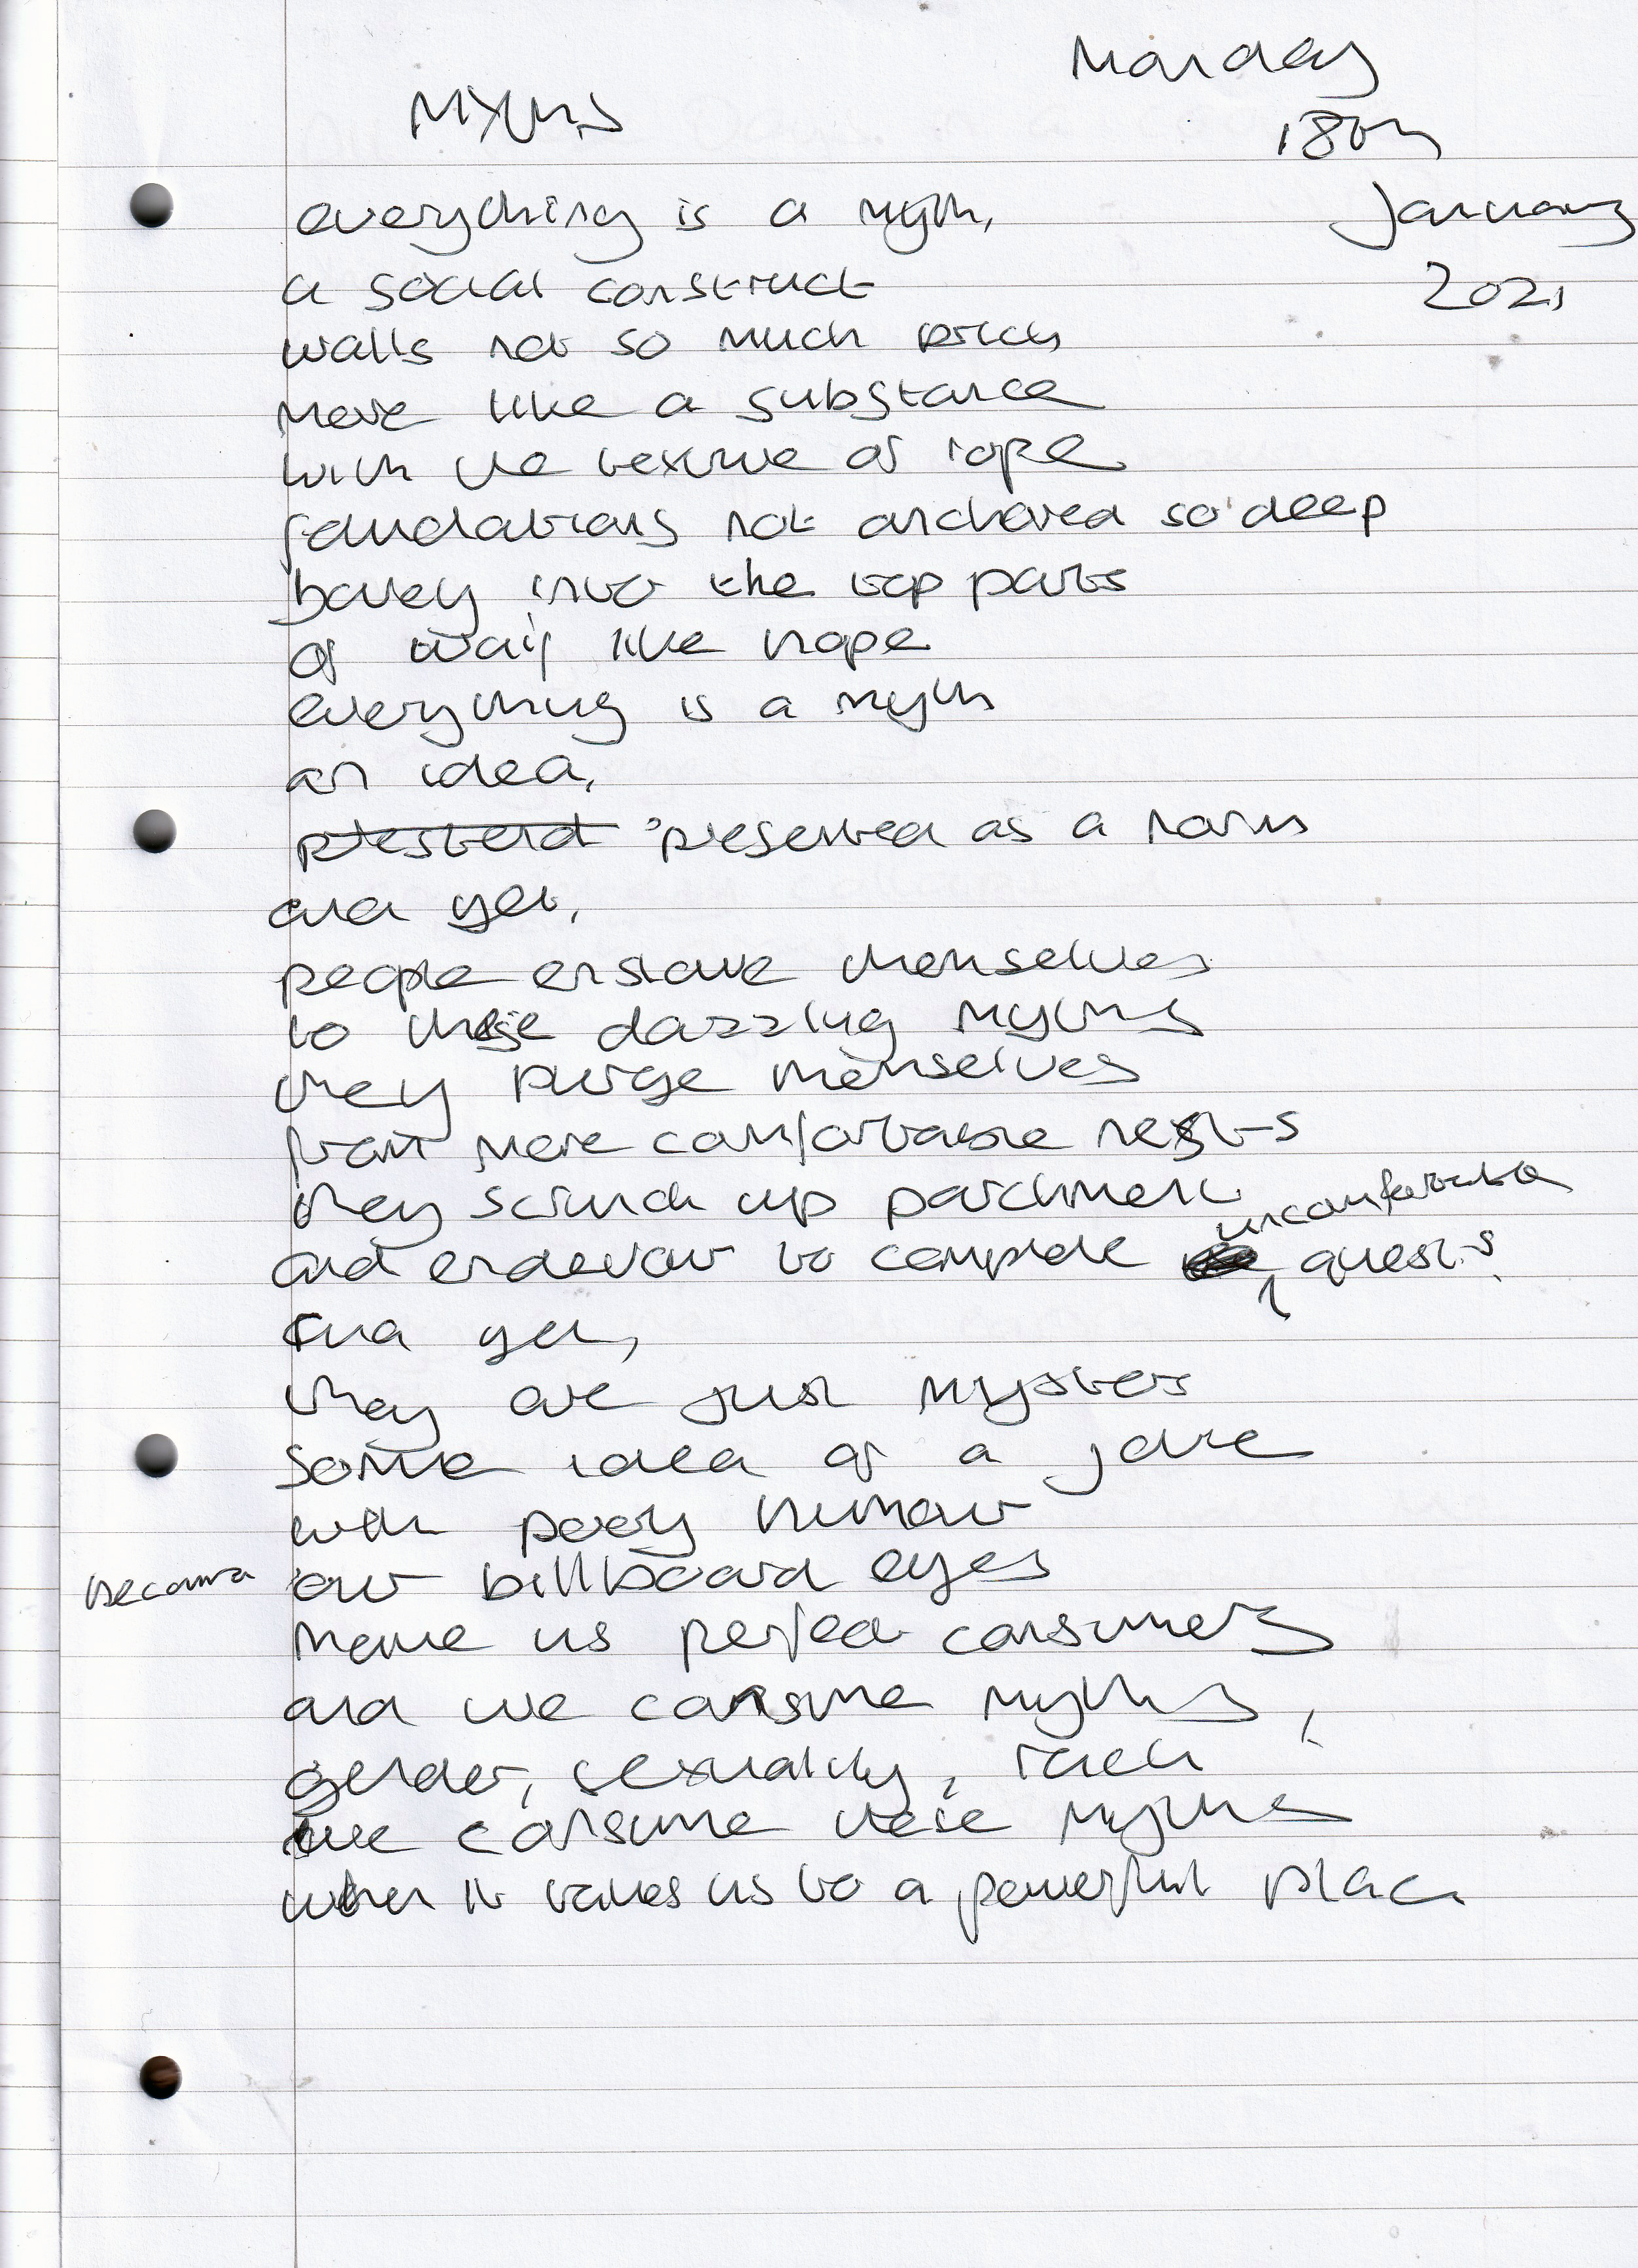 Monday
18th
January
2021
Myths
everything is a myth,
a social construct
walls not so much brick
more like a substance
with the texture of rope
foundations not anchored so deep
barely into the top parts
of like hope
everything is a myth
an idea,
presented as a norm
and yet,
people enslave themselves
to these dazzling myths
they purge themselves
from more comfortable nests
they scrunch up parchment
and endevour to complete uncomfortable quests.
and yet,
they are just
some idea of a joke
with poory humour
because our billboard eyes
make us perfect consumers
and we consume myths,
gender, sexuality,
we consume these myths
when it takes us to a powerful place